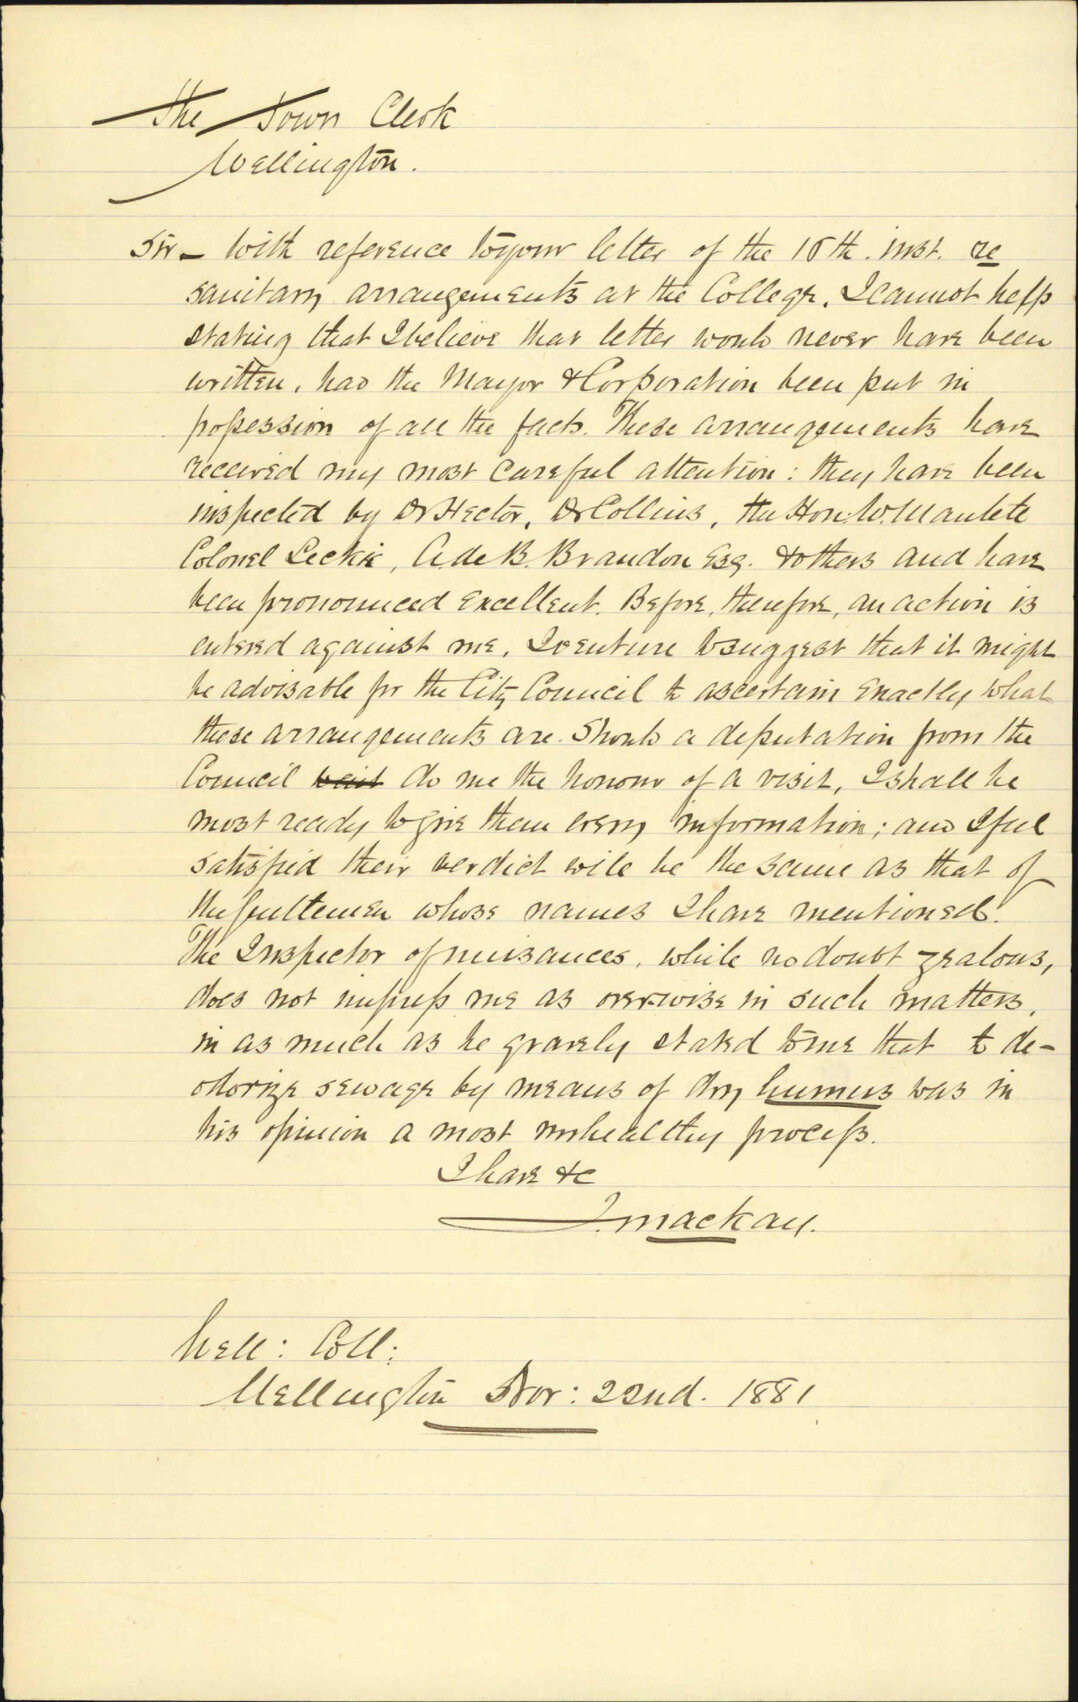 The Town Clerk
Wellington.
Sir – With reference to your letter of the 18th. inst. re
sanitary arrangements at the College, I cannot help
stating that I believe that letter would never have been
written, had the Mayor & Corporation been put in
possession of all the facts. These arrangements have
received my most careful attention: they have been
inspected by Dr Hector, Dr Collins, the Hon: W. Mantell
Colonel Leckie, A. de B. Brandon Esq. & others and have
been pronounced excellent. Before, therefore, an action is
entered against me, I venture to suggest that it might
be advisable for the City Council to ascertain exactly what
these arrangements are. Should a deputation from the
Council wait do me the honour of a visit, I shall be
most ready to give them every information; and I feel
satisfied their verdict will be the same as that of
the gentlemen whose names I have mentioned.
The Inspector of nuisances, while no doubt zealous,
does not impress me as over-wise in such matters,
in as much as he gravely stated to me that to de-
odorize sewage by means of dry humus was in
his opinion a most unhealthy process.
I have &c
J. Mackay.
Well: Coll:
Wellington Nov: 22nd. 1881